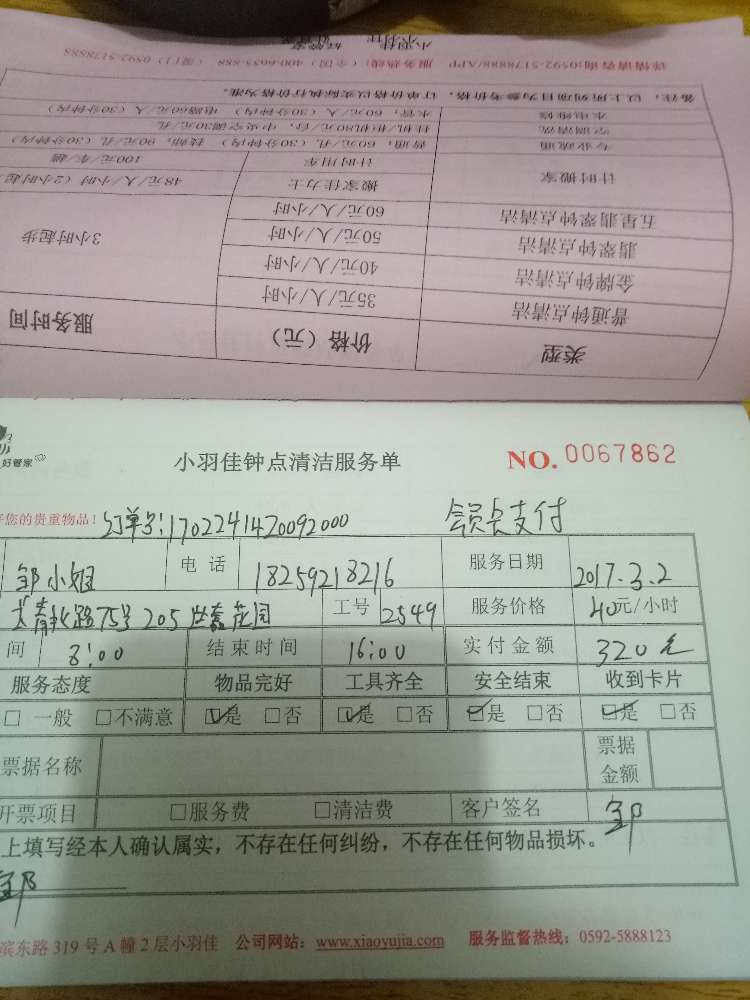 小羽佳
好管家
详情请咨询:0592-5178888/APP 服务热线:(全国) 400-6655-888 (厦门) 0592-5178888
备注:以上所列项目为参考价格,订单价格以实际执行价格为准。
水电维修 水管:60元/人(30分钟内) 电路60元/人(30分钟内)
空调清洗 挂机柜机80元/台,中央空调30元/孔
专业疏通 普通:60元/孔(30分钟内) 特殊:90元/孔(30分钟内)
计时用车 100元/车/趟
计时搬家 搬家佳力士 48元/人/小时(2小时起
五星翡翠钟点清洁 60元/人/小时
翡翠钟点清洁 50元/人/小时 3小时起步
金牌钟点清洁 40元/人/小时
普通钟点清洁 35元/人/小时
类型 价格(元) 服务时间
好管家
小羽佳钟点清洁服务单 NO. 0067862
您的贵重物品! 订单号:1702241420092000 会员卡支付
邹小姐 电话 18259218216 服务日期 2017.3.2
北路75号205 花园 工号 2549 服务价格 40元/小时
间 8:00 结束时间 16:00 实付金额 320元
服务态度 物品完好 工具齐全 安全结束 收到卡片
□ 一般 □不满意 ☑是 □否 ☑是 □否 ☑是 □否 ☑是 □否
票据名称 票据金额
开票项目 □服务费 □清洁费 客户签名 邹
上填写经本人确认属实,不存在任何纠纷,不存在任何物品损坏。
邹
滨东路 319 号 A 幢 2 层小羽佳 公司网站:www.xiaoyujia.com 服务监督热线:0592-5888123